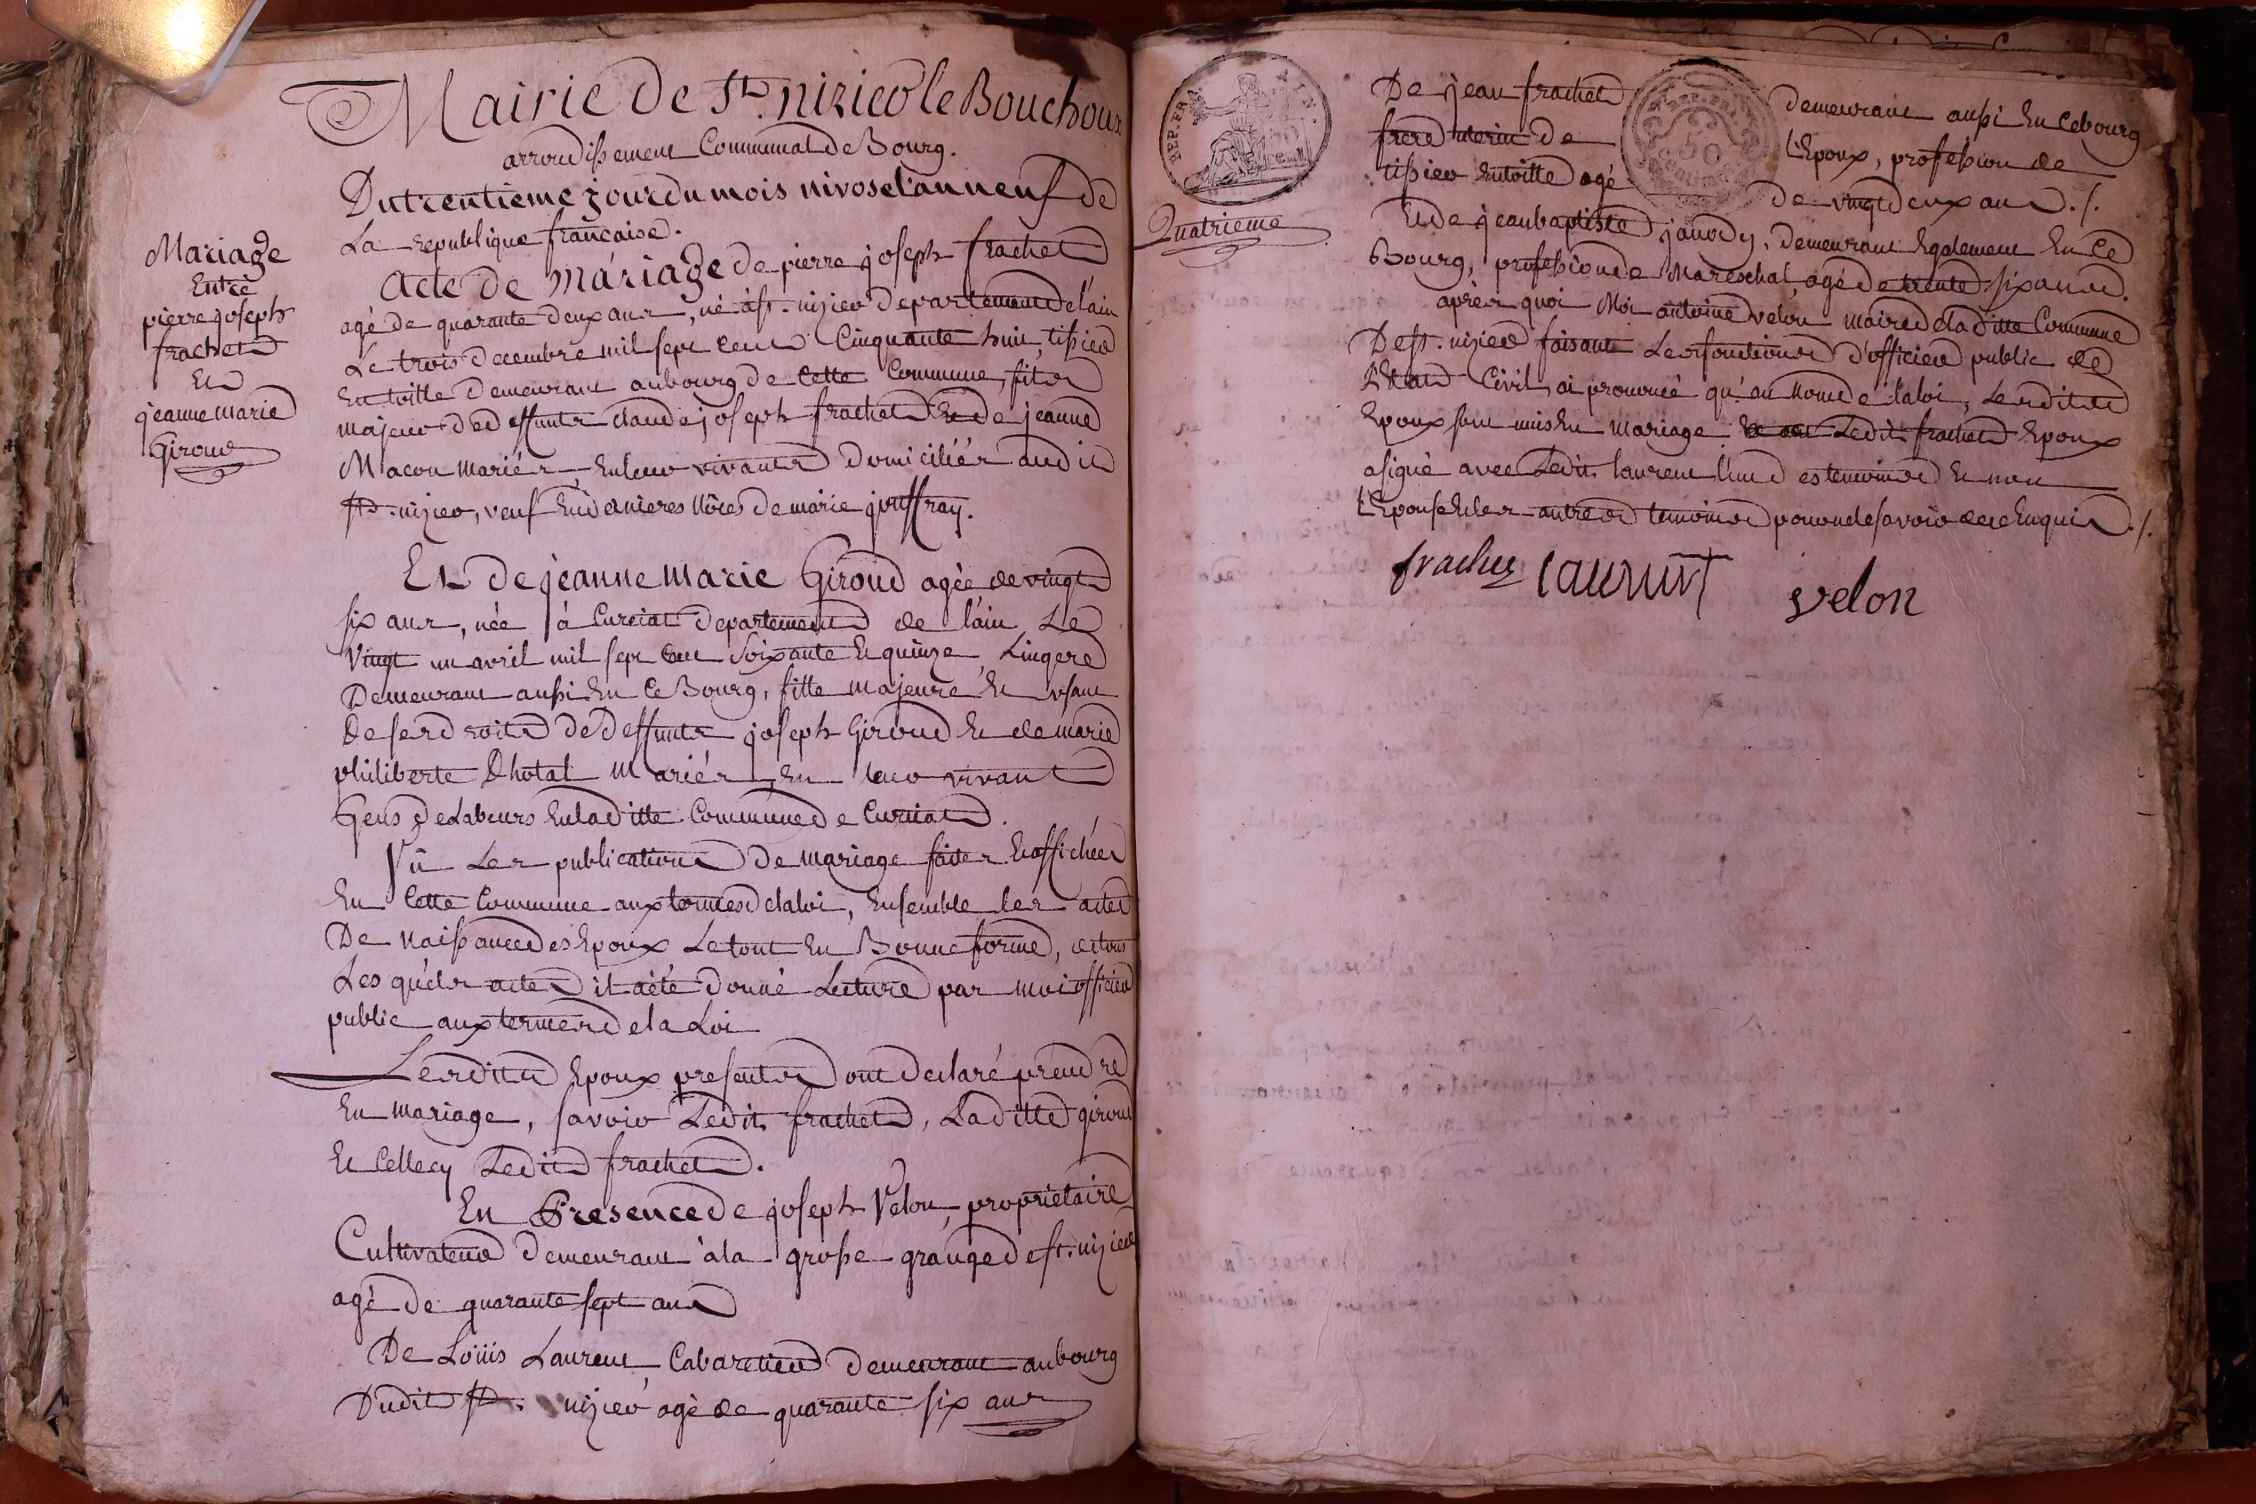 Mairie de St. nizier le Bouchoux
arrondissement Communal de Bourg.
Du trentieme jour du mois nivose l'an neuf de
La republique française.
Mariage
Entre
pierre joseph
frachet
Et
jeanne marie
Giroud
Acte de mariage de pierre joseph frachet
agé de quarante deux ans, né à st. nizier departement de l'ain
Le trois decembre mil sept cent Cinquante huit, tissier
En toille demeurant au bourg de Cette Commune, fils
majeur de deffunts claude joseph frachet Et de jeanne
Macon mariés, En leur vivants domiciliés audit
st. nizier, veuf En dernieres nôces de marie jouffray.
Et de jeanne marie Giroud agée de vingt
six ans, née à Curciat departement de l'ain Le
Vingt un avril mil sept cent soixante Et quinze, Lingere
Demeurant aussi En Ce Bourg, fille majeure Et usant
de ses droits de deffunts joseph Giroud Et de marie
philiberte Dhotal Mariés, En leur vivant
Gens de Labeurs En laditte Commune de Curciat.
Vû Les publications de mariage faites Et affichées
En Cette Commune aux termes de la loi, Ensemble les actes
De Naissance des Epoux, Le tout En Bonne forme, de tous
Les quels actes il a été donné Lecture par moi officier
public aux termes de la Loi
Lesdits Epoux presents ont declaré prendre
En mariage, savoir Ledit frachet, Laditte giroud
Et Celle cy Ledit frachet.
En Presence de joseph Velon, proprietaire
Cultivateur demeurant à la grosse grange de st. nizier
agé de quarante sept ans
De Loüis Laurent, Cabaretier demeurant au bourg
Dudit st. nizier agé de quarante six ans
REP. FRA.
Quatrieme
De jean frachet demeurant aussi En Ce bourg
frere uterin de L'Epoux, profession de
tissier En toille agé de vingt deux ans ./.
Et de jean baptiste janody, demeurant Egalement En Ce
Bourg, profession de Mareschal, agé de trente six ans.
après quoi Moi antoine velon maire de laditte Commune
De st. nizier faisant Les fonctions d'officier public de
L'Etat Civil, ai prononcé qu'au Nom de la loi, Lesdits
Epoux sont unis En Mariage Ledit frachet Epoux
a signé avec Ledit laurent l'un des temoins Et non
L'Epouse Et les autres temoins pour ne le savoir de ce Enquis ./.
frachet laurent velon